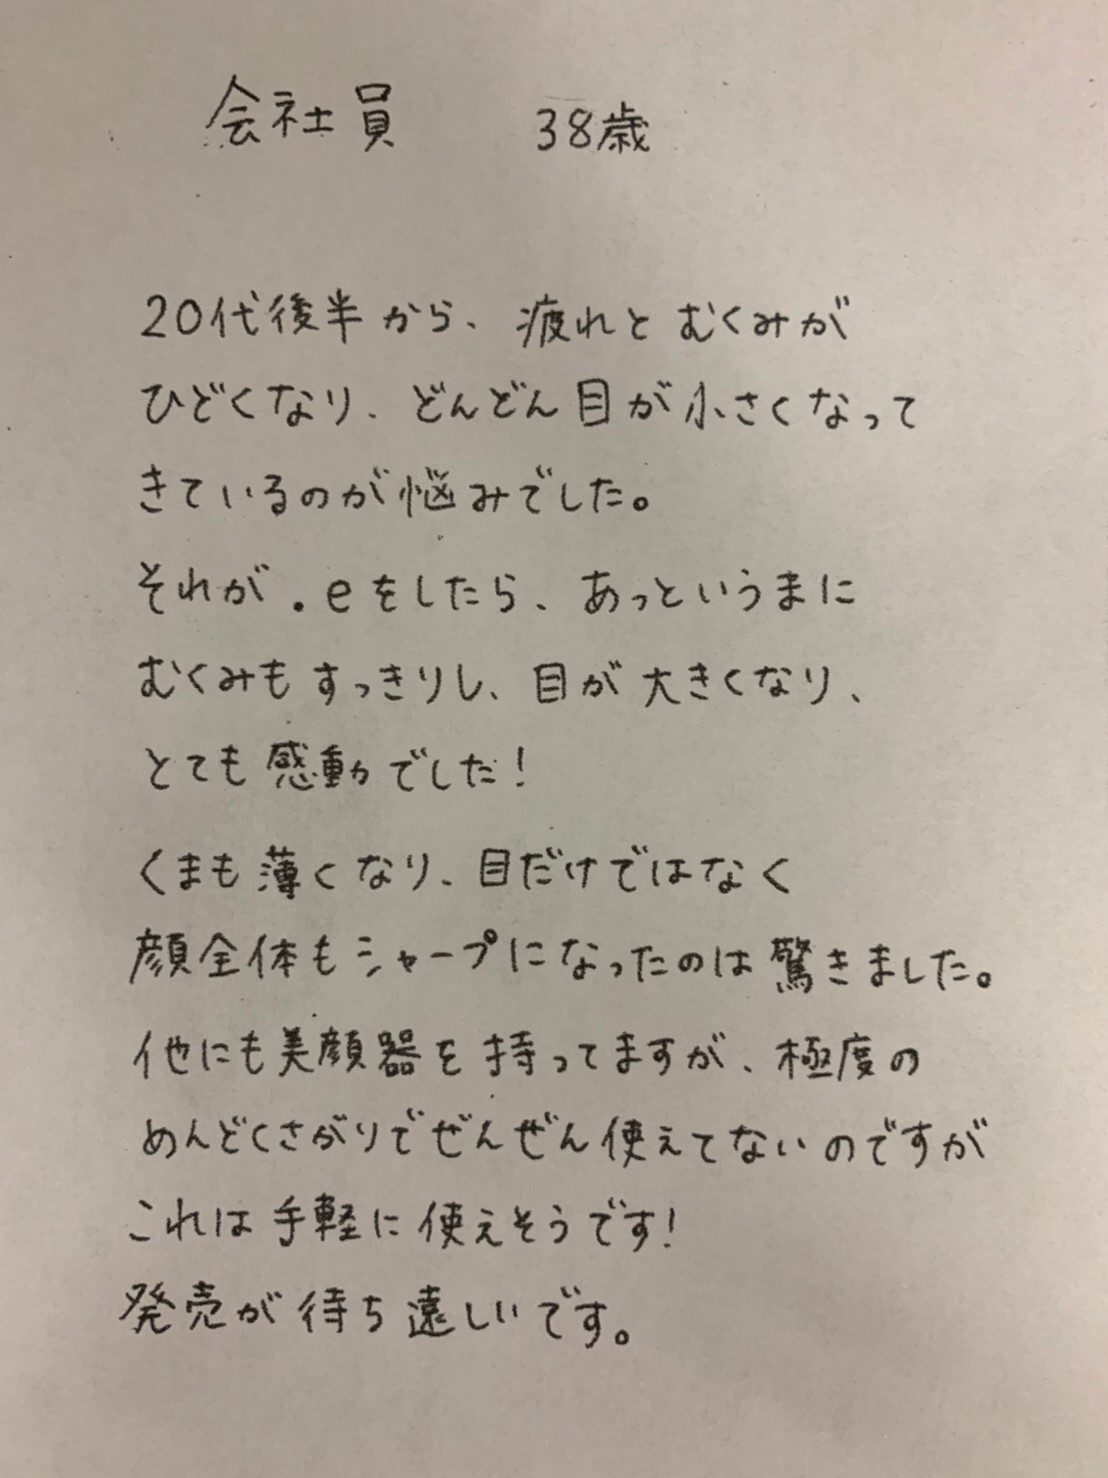 会社員　38歳
20代後半から、疲れとむくみが
ひどくなり、どんどん目が小さくなって
きているのが悩みでした。
それが.eをしたら、あっというまに
むくみもすっきりし、目が大きくなり、
とても感動でした!
くまも薄くなり、目だけではなく
顔全体もシャープになったのは驚きました。
他にも美顔器を持ってますが、極度の
めんどくさがりでぜんぜん使えてないのですが
これは手軽に使えそうです!
発売が待ち遠しいです。